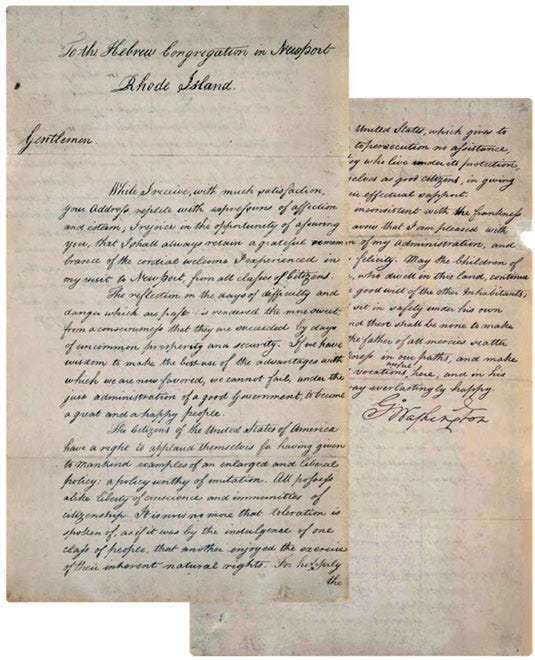 To the Hebrew Congregation in Newport
Rhode Island.
Gentlemen
While I receive, with much satisfaction,
your Address replete with expressions of affection
and esteem; I rejoice in the opportunity of assuring
you, that I shall always retain a grateful remem
brance of the cordial welcome I experienced in
my visit to Newport, from all classes of Citizens.
The reflection on the days of difficulty and
danger which are past is rendered the more sweet,
from a consciousness that they are succeeded by days
of uncommon prosperity and security. If we have
wisdom to make the best use of the advantages with
which we are now favored, we cannot fail, under the
just administration of a good Government, to become
a great and a happy people.
The Citizens of the United States of America
have a right to applaud themselves for having given
to Mankind examples of an enlarged and liberal
policy: a policy worthy of imitation. All possess
alike liberty of conscience and immunities of
citizenship. It is now no more that toleration is
spoken of, as if it was by the indulgence of one
class of people, that another enjoyed the exercise
of their inherent natural rights. For happily
the
United States, which gives to
to persecution no assistance,
ey who live under its protection,
selves as good citizens, in giving
eir effectual support.
inconsistent with the frankness
avow that I am pleased with
n of my Administration, and
felicity. May the Children of
, who dwell in this land, continue
e good will of the other Inhabitants;
sit in safety under his own
nd there shall be none to make
the father of all mercies scatter
kness in our paths, and make
useful
vocations here, and in his
ay everlastingly happy.
G. Washington